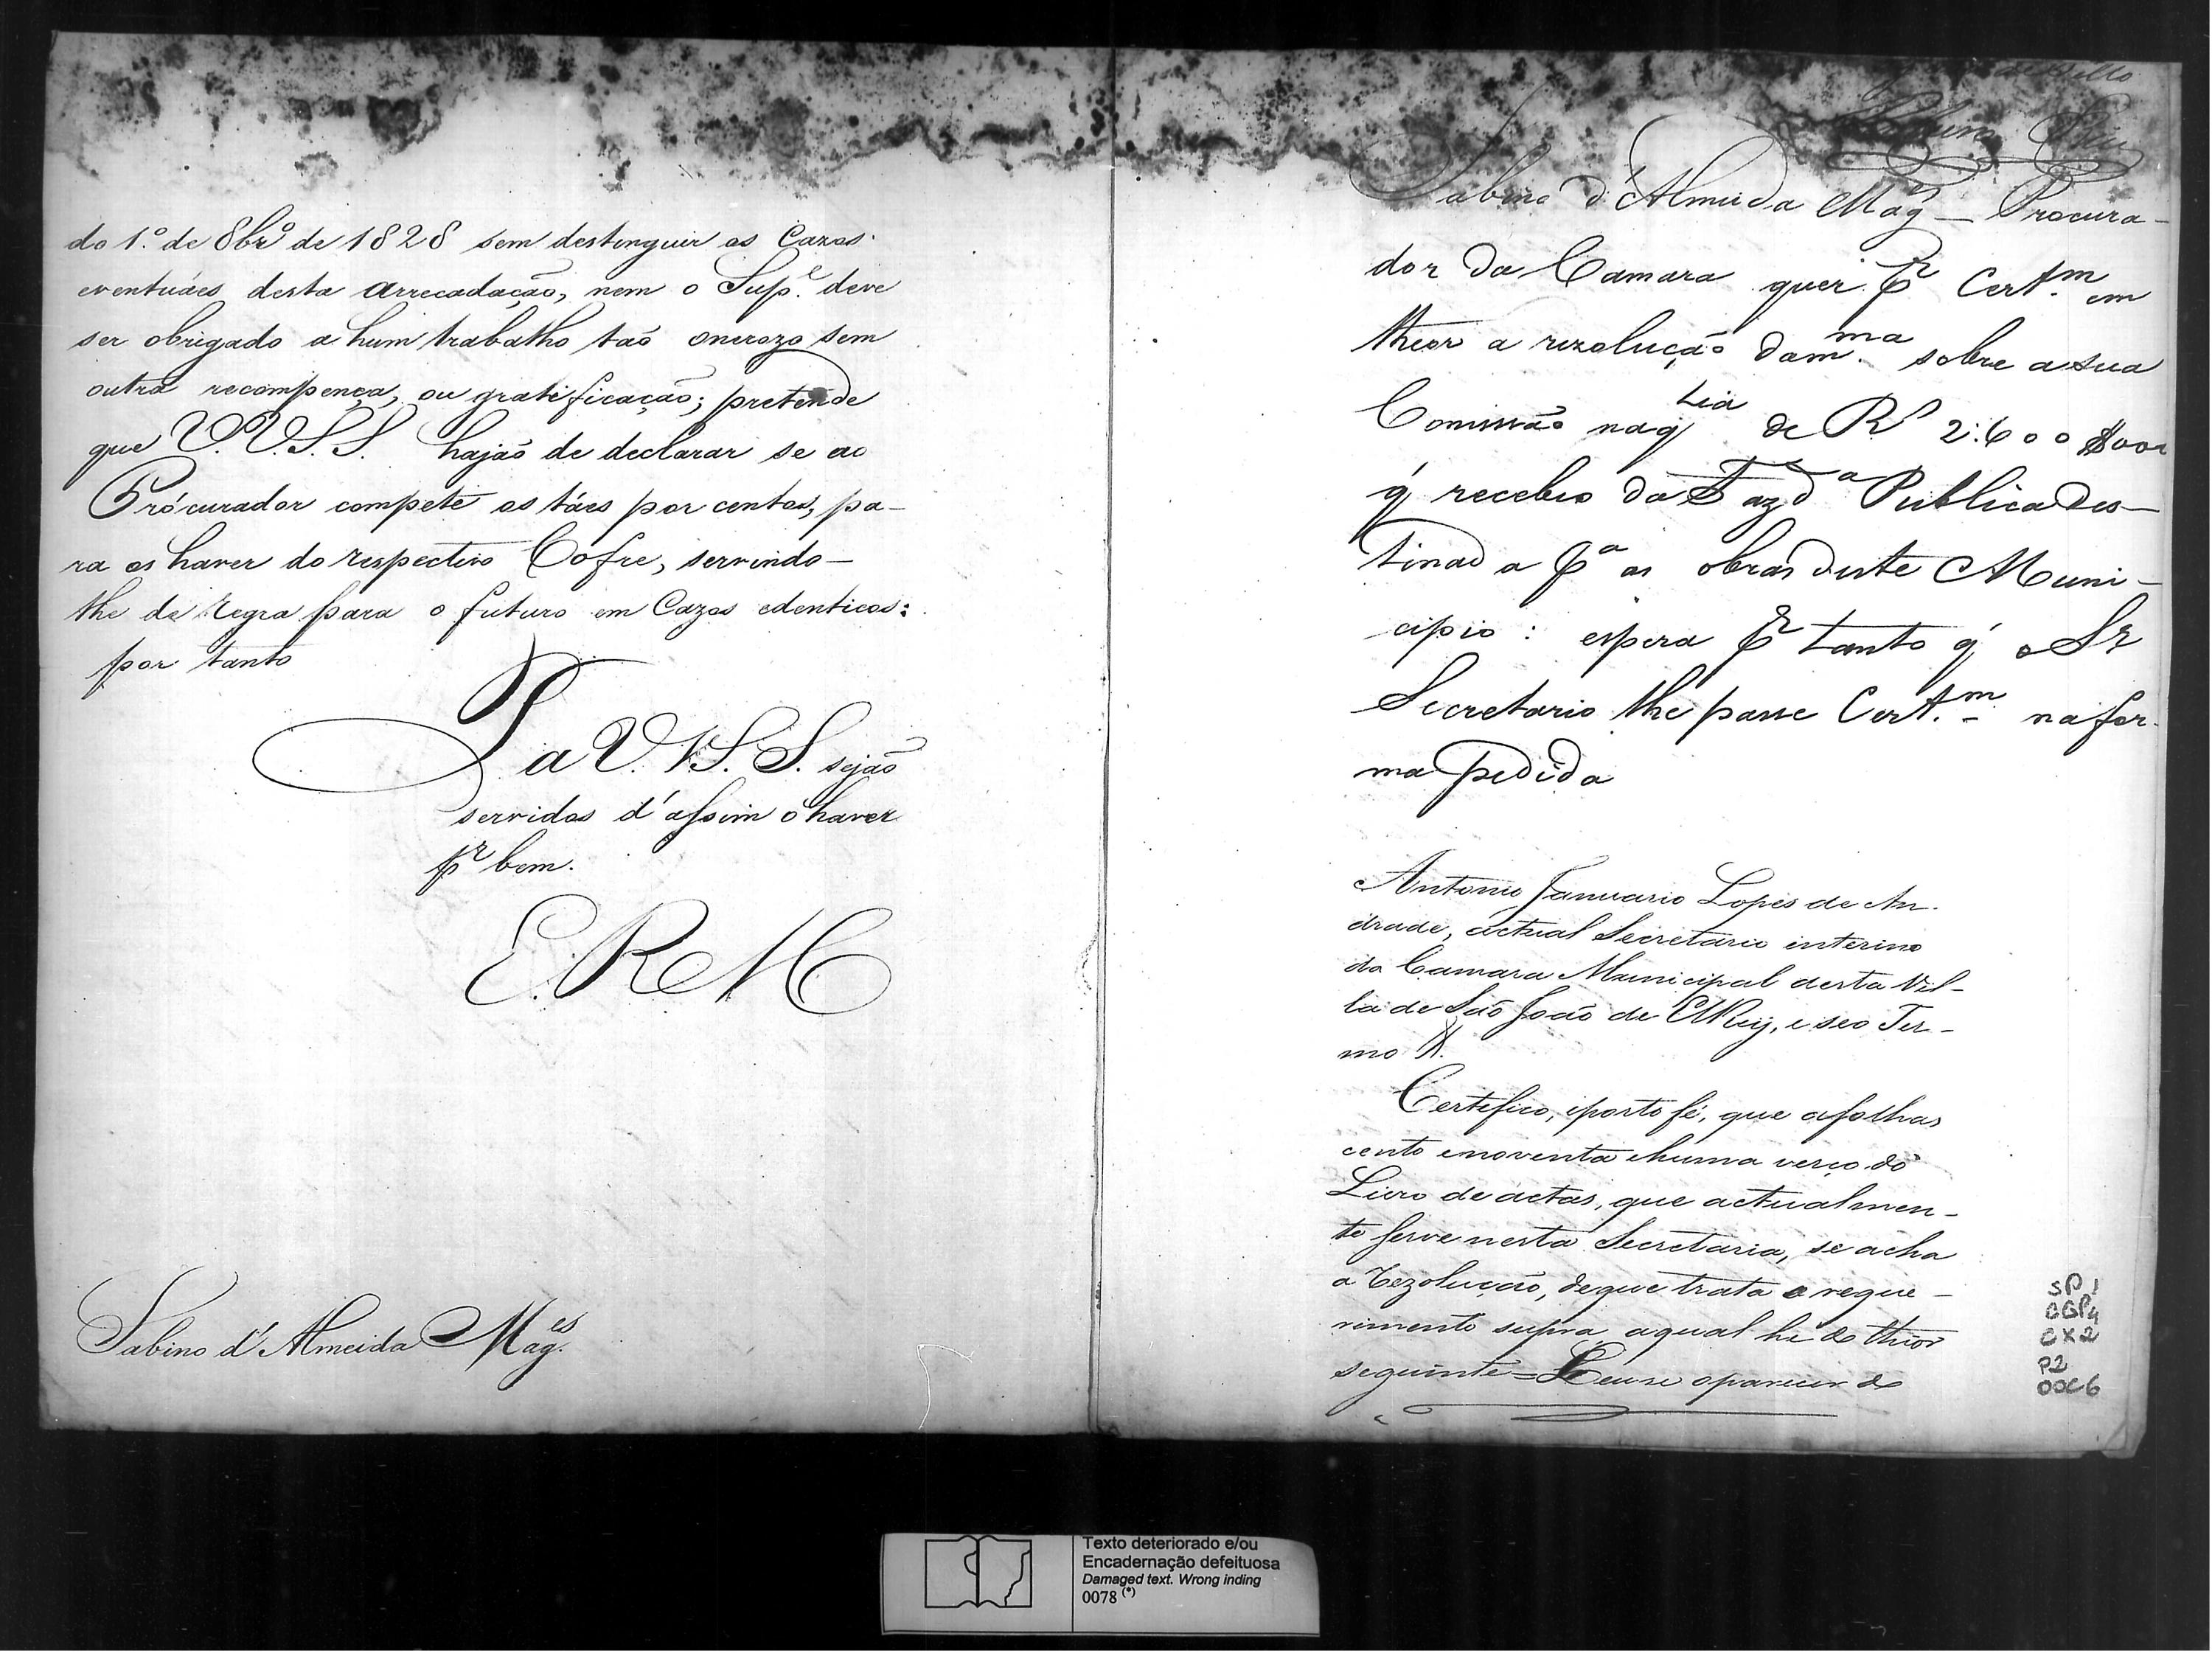 do 1.º de 8brº de 1828 sem destinguir os Cazos
eventuáes desta Arrecadação, nem o Supe. deve
ser obrigado a hum trabalho taõ onerozo sem
outra recompença, ou gratificação; pretende
que V.V.S.S. hajaõ de declarar se ao
Procurador compete os táes por centos, pa-
ra os haver do respectivo Cofre, servindo-
lhe de regra para o futuro em Cazos edenticos:
por tanto
P a V.V.S.S. sejaõ
servidos d'assim o haver
pr bem.
E.R.M
Sabino d'Almeida Mages.
Sabino d'Almeida Mag - Procura-
dor da Camara quer pr Certm. em
theor a rezoluçaõ dam.ma sobre a sua
Comissaõ naqtia de Rs 2:600$000
q' recebeo da Fazda Publica des-
tinada pa as obras deste Muni-
cipio: espera pr tanto q' o Sr
Secretario lhe passe Cert.m na for-
ma pedida
Antonio Januario Lopes de An-
drade, actual Secretario interino
da Camara Municipal desta Vil-
la de Saõ Joaõ de ElRey, e seo Ter-
mo &.
Certefico, eporto fé, que afolhas
cento enoventa ehuma verço do
Livro de actas, que actualmen-
te serve nesta Secretaria, se acha
a Rezoluçaõ, deque trata o reque-
rimento supra, aqual he do theor
seguinte = Leuse oparecer do
SP1
CGP4
CX2
P2
DOC6
Texto deteriorado e/ou
Encadernação defeituosa
Damaged text. Wrong inding
0078 (*)